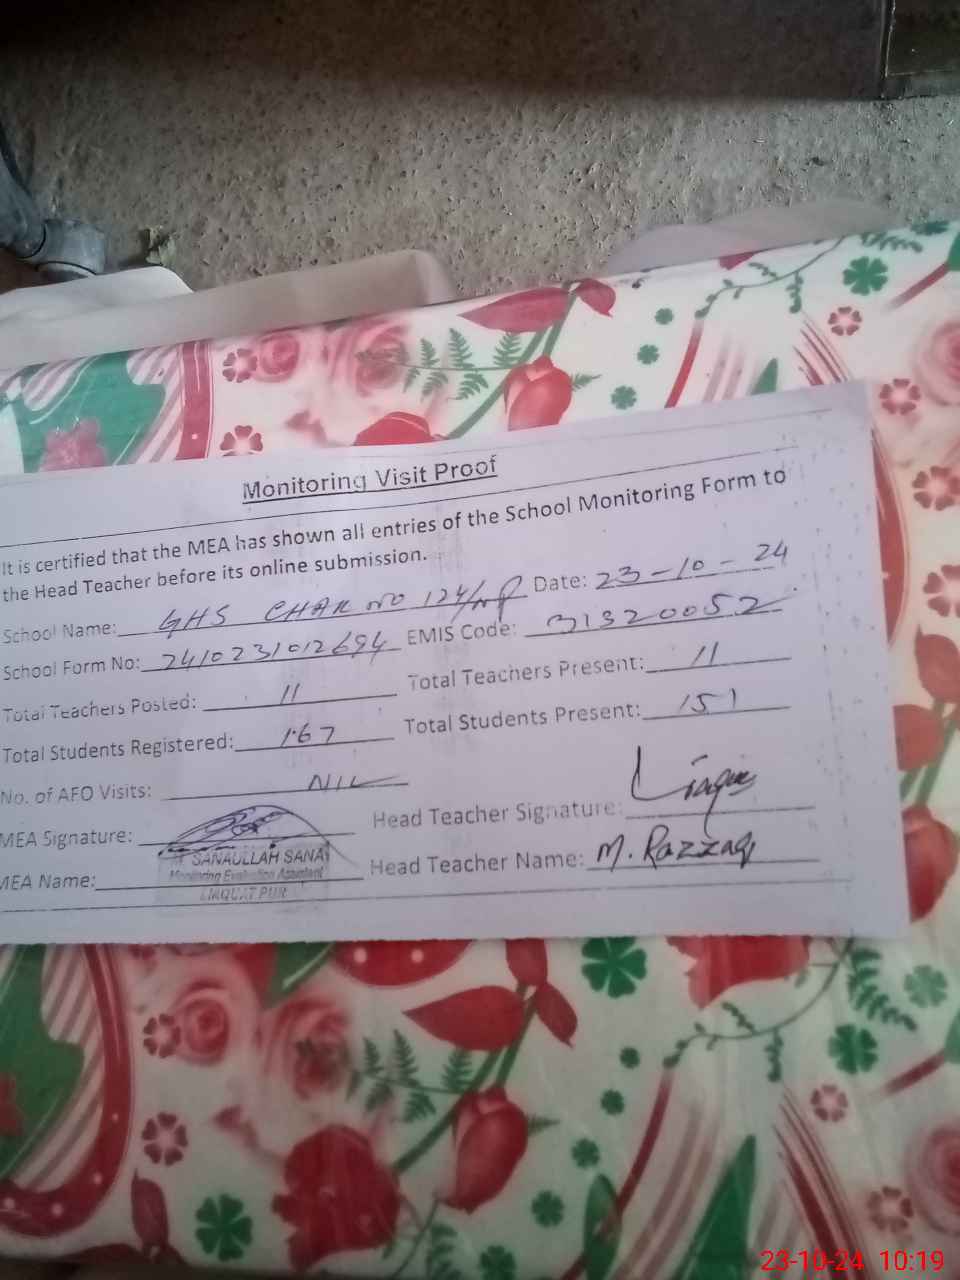 Monitoring Visit Proof
It is certified that the MEA has shown all entries of the School Monitoring Form to
the Head Teacher before its online submission.
School Name: GHS CHAK NO 124/NP Date: 23-10-24
School Form No: 2410231012694 EMIS Code: 31320052
Total Teachers Posted: 11 Total Teachers Present: 11
Total Students Registered: 167 Total Students Present: 151
No. of AFO Visits: NIL
MEA Signature: Head Teacher Signature:
SANAULLAH SANA
Monitoring Evaluation Assistant
LIAQUAT PUR
MEA Name: Head Teacher Name: M. Razzaq
23-10-24 10:19